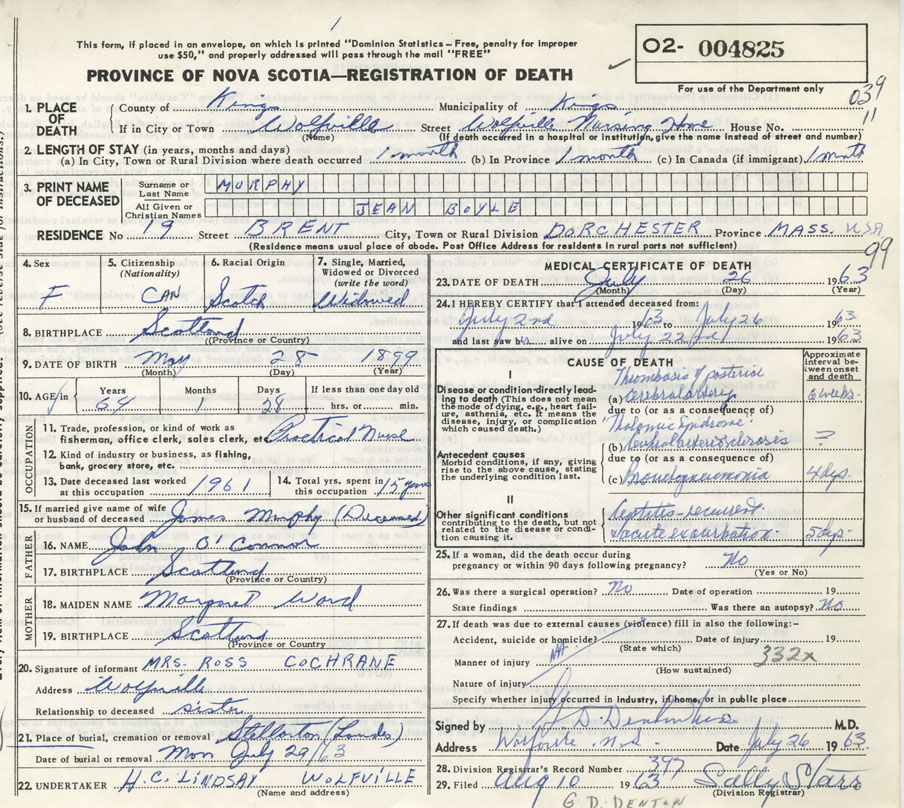 This form, if placed in an envelope, on which is printed "Dominion Statistics – Free, penalty for improper
use $50," and properly addressed will pass through the mail "FREE"
O2- 004825
PROVINCE OF NOVA SCOTIA—REGISTRATION OF DEATH
For use of the Department only
039
11
1. PLACE OF DEATH County of Kings Municipality of Kings
If in City or Town Wolfville Street Wolfville Nursing Home House No.
(Name) (If death occurred in a hospital or institution, give the name instead of street and number)
2. LENGTH OF STAY (in years, months and days)
(a) In City, Town or Rural Division where death occurred 1 month (b) In Province 1 month (c) In Canada (if immigrant) 1 month
3. PRINT NAME OF DECEASED Surname or Last Name MURPHY
All Given or Christian Names JEAN BOYLE
RESIDENCE No 19 Street BRENT City, Town or Rural Division DORCHESTER Province MASS. USA
(Residence means usual place of abode. Post Office Address for residents in rural parts not sufficient)
99
4. Sex F
5. Citizenship (Nationality) CAN
6. Racial Origin Scotch
7. Single, Married, Widowed or Divorced (write the word) Widowed
8. BIRTHPLACE Scotland
(Province or Country)
9. DATE OF BIRTH May 28 1899
(Month) (Day) (Year)
10. AGE in Years 64 Months 1 Days 28 If less than one day old hrs. or min.
OCCUPATION
11. Trade, profession, or kind of work as
fisherman, office clerk, sales clerk, etc. Practical Nurse
12. Kind of industry or business, as fishing,
bank, grocery store, etc.
13. Date deceased last worked at this occupation 1961
14. Total yrs. spent in this occupation 15 years
15. If married give name of wife
or husband of deceased James Murphy (Deceased)
FATHER
16. NAME John O'Connor
17. BIRTHPLACE Scotland
(Province or Country)
MOTHER
18. MAIDEN NAME Margaret Ward
19. BIRTHPLACE Scotland
(Province or Country)
20. Signature of informant MRS. ROSS COCHRANE
Address Wolfville
Relationship to deceased sister
21. Place of burial, cremation or removal Stellarton
Date of burial or removal Mon July 29/63
22. UNDERTAKER H.C. LINDSAY WOLFVILLE
(Name and address)
MEDICAL CERTIFICATE OF DEATH
23. DATE OF DEATH July 26 1963
(Month) (Day) (Year)
24. I HEREBY CERTIFY that I attended deceased from:
July 2nd 1963 to July 26 1963
and last saw h alive on July 22 1963
CAUSE OF DEATH
Approximate interval between onset and death
I
Disease or condition directly leading to death (This does not mean the mode of dying, e.g., heart failure, asthenia, etc. It means the disease, injury, or complication which caused death.)
Thrombosis of posterior
(a) cerebral artery 6 weeks
due to (or as a consequence of)
Thalamic syndrome
Antecedent causes
Morbid conditions, if any, giving rise to the above cause, stating the underlying condition last.
(b) Cerebral arteriosclerosis ?
due to (or as a consequence of)
(c) Bronchopneumonia 4 days
II
Other significant conditions
contributing to the death, but not related to the disease or condition causing it.
recurrent
acute exacerbation 5 days
25. If a woman, did the death occur during
pregnancy or within 90 days following pregnancy? No
(Yes or No)
26. Was there a surgical operation? No Date of operation 19
State findings Was there an autopsy? No
27. If death was due to external causes (violence) fill in also the following:–
Accident, suicide or homicide? NA Date of injury 19
(State which)
Manner of injury 332x
(How sustained)
Nature of injury
Specify whether injury occurred in industry, if home, or in public place
Signed by M.D.
Address N.S. Date July 26 1963
28. Division Registrar's Record Number 397
29. Filed Aug 10 1963 Sally Starr
(Division Registrar)
G. D. DENTON